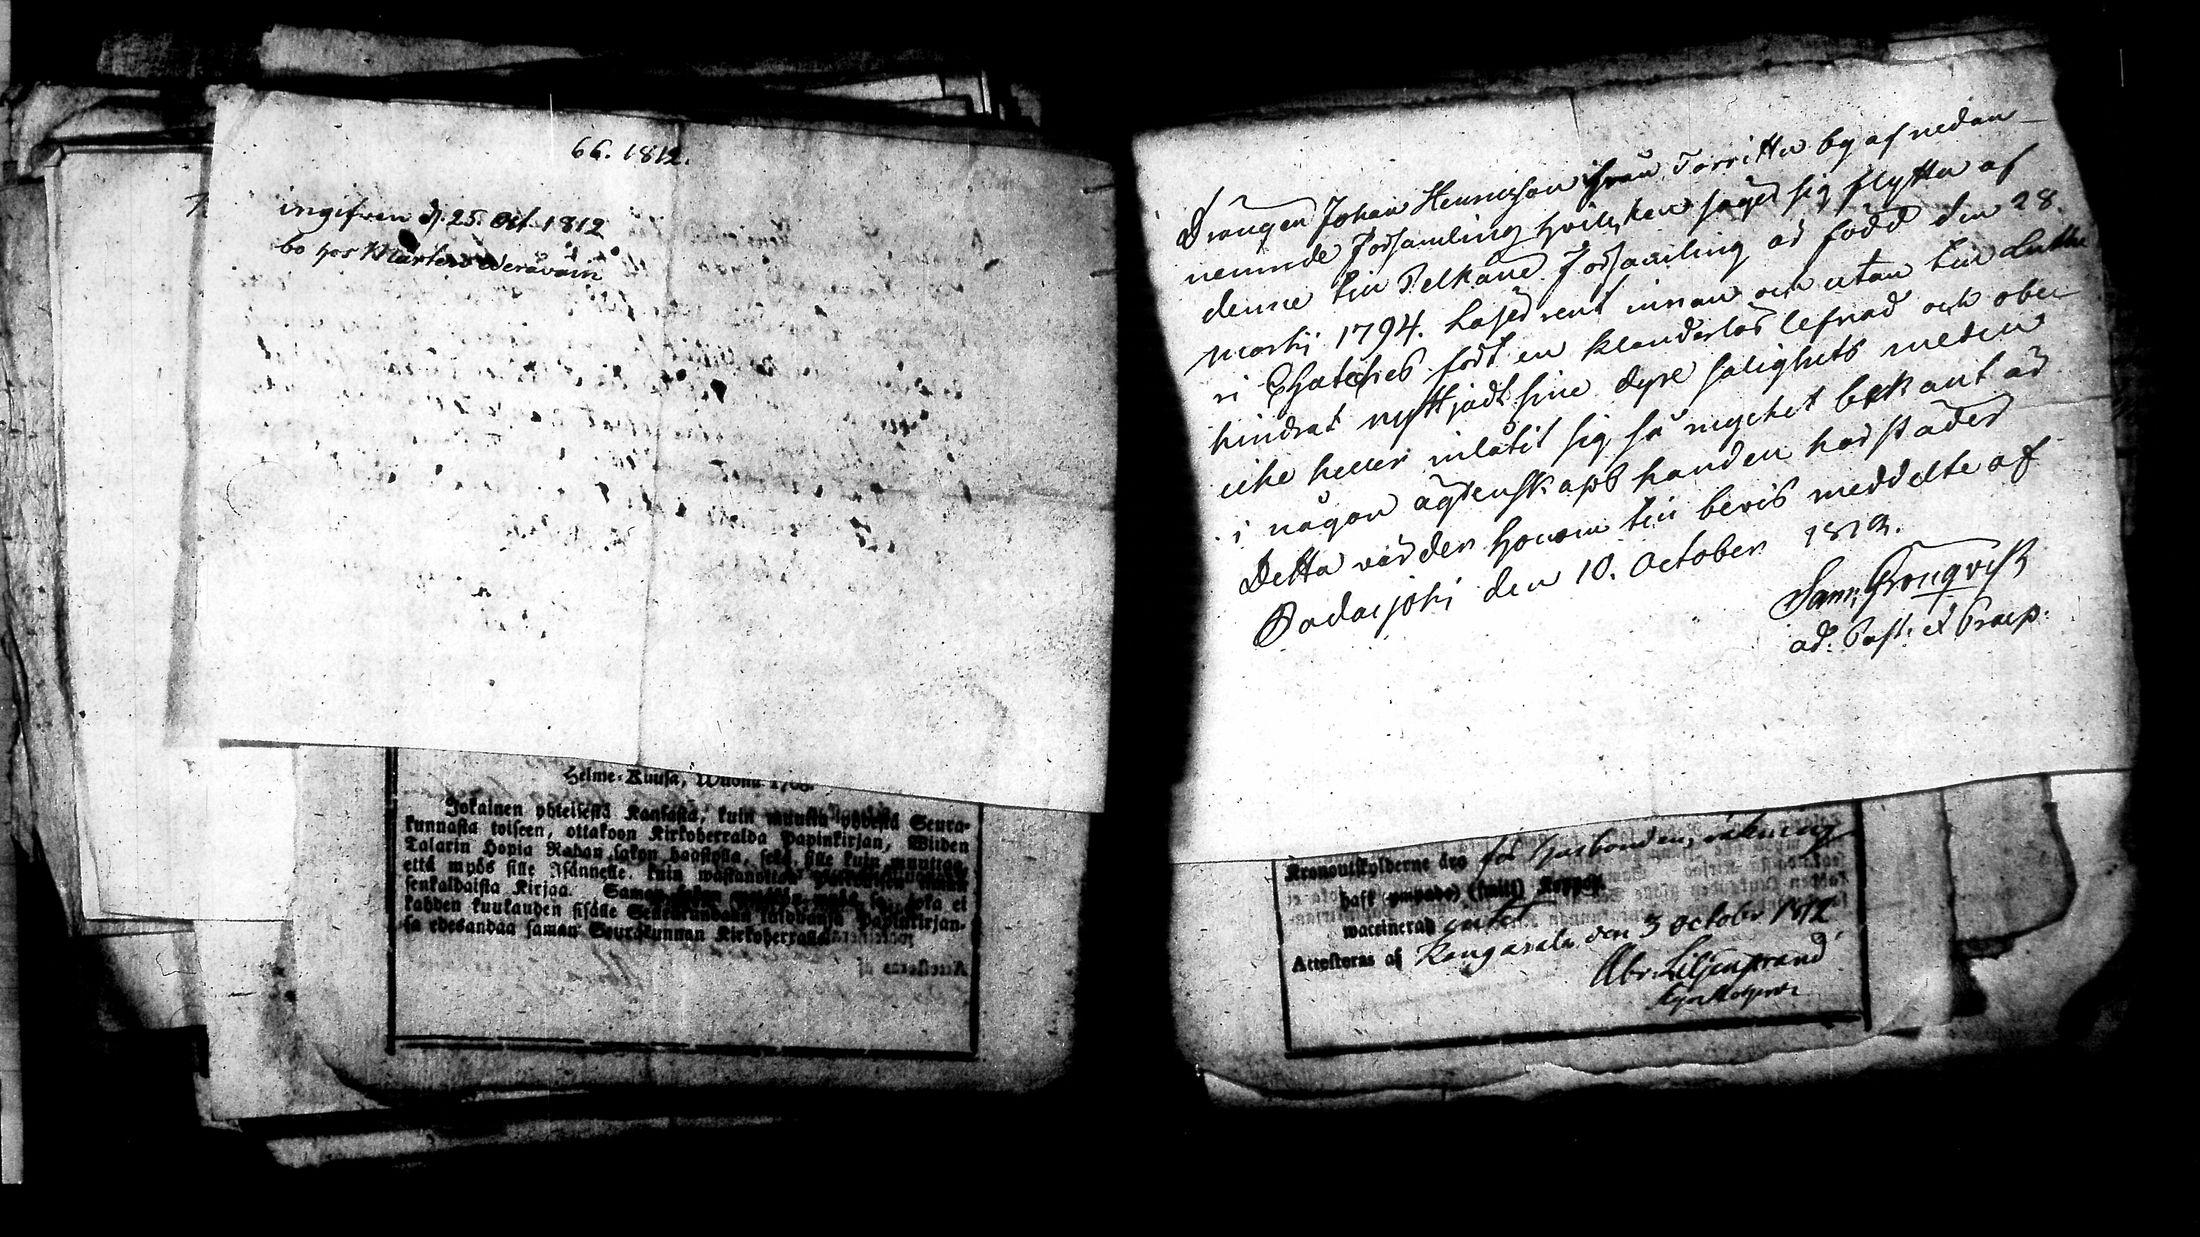 66. 1812.
ingifven d. 25. Oct. 1812
bo hos Mårtens
Helme-Kuusa, Wuonna
Jokainen yhteisestä Kansasta, kuin muutta yhdestä Seura-
kunnasta toiseen, ottakoon Kirkoherralda Papinkirjan, Wiiden
Talarin Hopia Rahan sakon haastolla, sekä sille kuin muuttaa,
että myös sille Isännelle, kuin wastanottaa
senkaldaista Kirjaa. Saman joka ei
kahden kuukauden sisälle Seurakundaan Papinkirjan-
sa edesandaa saman Seurakunnan Kirkoherralle
Drängen Johan Henricsson ifrån Torittu by af nedan-
nemnde Församling hvilcken säger sig flytta af
denne till Pelkäne Församling är född den 28.
Martii 1794. Läser rent innan och utan till Luthe
ri Chateches fört en klanderlös lefnad och obe-
hindrat nyttjadt sine dyre salighets medeln
icke heller inlåtit sig så mycket bekant är
i någon ägtenskaps handen
Detta varder honom till bevis meddelte af
Padasjoki den 10. October 1812.
Sam: Cronqvist
ad: Past: et Praep:
Kronoutskylderne äro för husbonden,
haft (smitt) Koppor
waccinerad
Attesteras af Kangasala den 3 October 1812
Abr: Liljenstrand